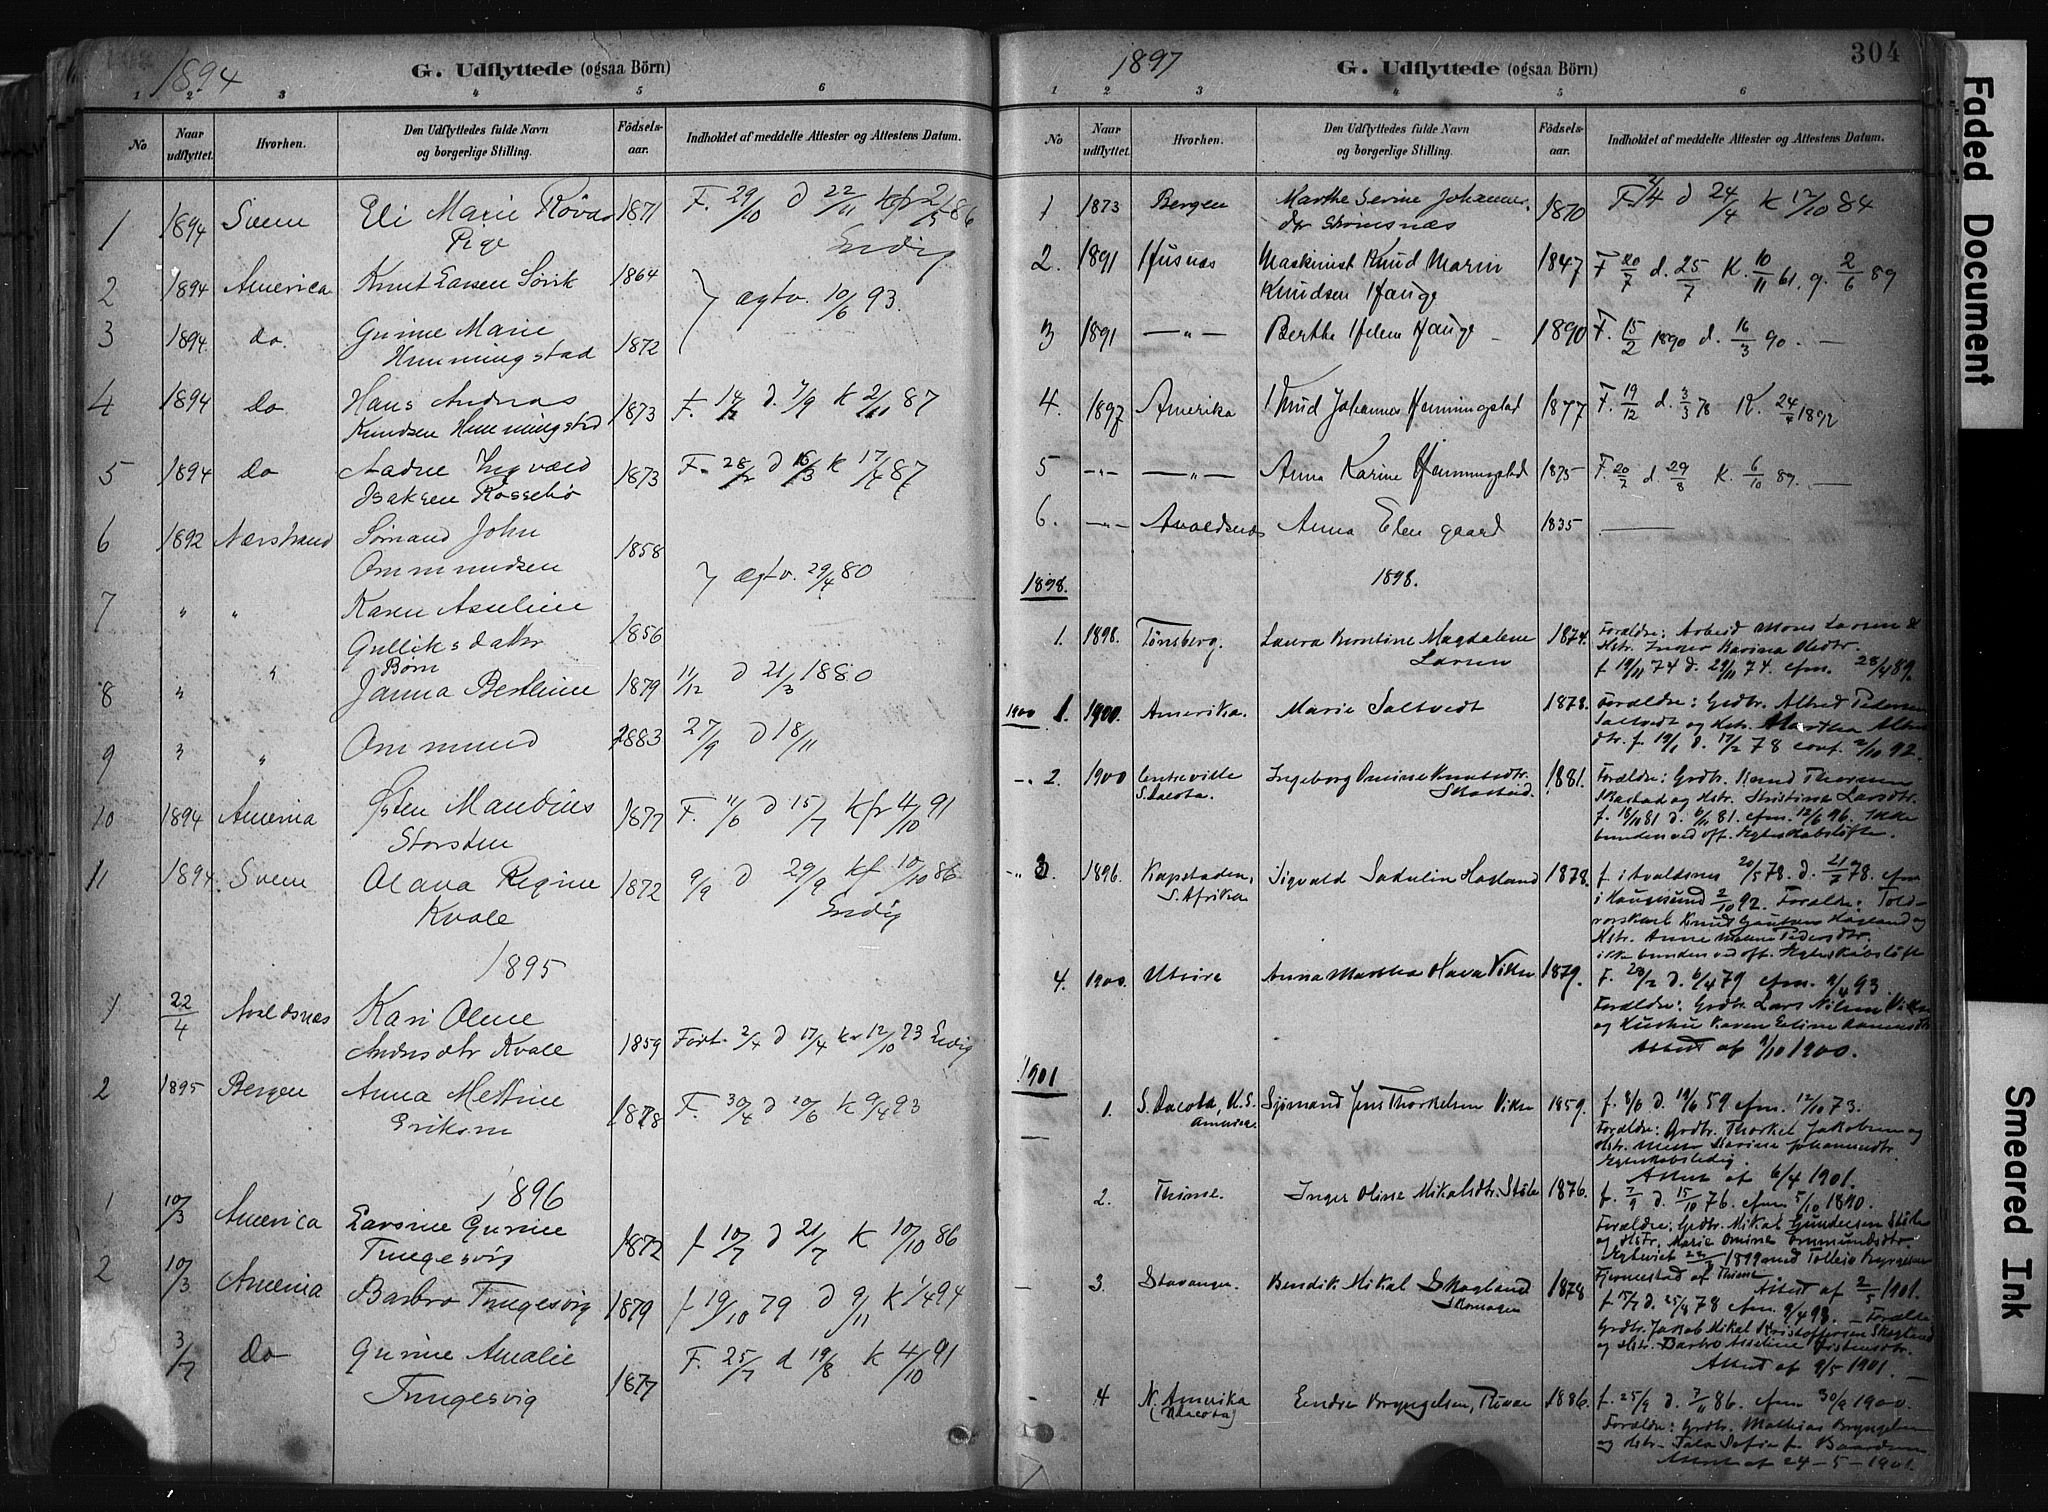 1894
G. Udflyttede (ogsaa Börn)
1 2 3 4 5 6
No
Naar udflyttet.
Hvorhen.
Den Udflyttedes fulde Navn og borgerlige Stilling.
Fødsels-aar.
Indholdet af meddelte Attester og Attestens Datum.
1 1894 Eli Marie 1871 F. 29/10 d 22/11
Pige
2 1894 America Knut Larsen 1864
Ægtv. 10/6 93.
3 1894 do. Gurine Marie
Hemmingstad 1872
4 1894 do. Hans Andreas
Knudsen Hemmingstad 1873
5 1894 do Aadne Ingvald
Isaksen Røssebø 1873
6 1892 Nærstrand Sømand John
Ommundsen 1858
Ægtv. 29/4 80
7 " " Karen Asseline
Gulliksdattr 1856
Børn
8 " " Janna Bertine 1879 11/12 d 21/3 1880
9 " " Ommund 1883 27/9 d 18/11
10 1894 America Østen Mandius 1877 F. 11/6 d 15/7 kfr 4/10 91
Storsten
11 1894 Olava Regine 1872 9/9 d 29/9 kf 10/10 86
Kvale
1895
1 22/4 Avaldsnæs Kari Oline
Andersdtr Kvale 1859 Født 2/4 d 17/4 kr 12/10 73 Ledig
2 1895 Bergen Anna Mettine 1878 F. 30/4 d 20/6 K 9/4 93
Eriksen
1896
1 10/3 America Larsine Gurine
Tungesvig 1872 f 10/7 d 21/7 K 10/10 86
2 10/3 America Barbro Tungesvig 1879 f 19/10 79 d 9/11 K 1/4 94
3/7 Do Gurine Amalie
Tungesvig 1877 F. 25/7 d 19/8 K 4/10 91
1897
G. Udflyttede (ogsaa Börn)
304
1 2 3 4 5 6
No
Naar udflyttet.
Hvorhen.
Den Udflyttedes fulde Navn og borgerlige Stilling.
Fødsels-aar.
Indholdet af meddelte Attester og Attestens Datum.
1 1873 Bergen Marthe Serine Johannes-
dtr Strømsnæs 1870 d 24/4 K 12/10 84
2. 1891 Husnæs Maskinist Knud Marin
Knudsen Hauge 1847 F 20/7 d. 25/7 K. 10/11 61. g. 2/6 89
3 1891 —"— Bertha Helene Hauge 1890 F. 15/2 1890 d. 16/3 90.
4. 1897 Amerika Knud Johannes Hemmingstad 1877 F. 19/12 d. 3/3 78 K. 24/4 1892
5 —"— —"— Anna Karine Hemmingstad 1875 F. 20/7 d. 29/8 K. 6/10 89.
6. —"— Avaldsnæs Anna Elen gaard 1835
1898. 1898.
1. 1898. Tønsberg. Laura Magdalene
Larsen 1874. Forældre: Arbeid. Mons Larsen &
Hstr. Inger Karina
f 19/11 74 d. 29/11 74. cfm. 28/4 89.
1900 1. 1900. Amerika. Marie Saltvedt 1878. Forældre: Grdbr. Alfred Pedersen
Saltvedt og Hstr. Martha
dtr. f. 19/1 d. 17/2 78 conf. 2/10 92.
—"— 2. 1900 Centreville
S. Dacota. Ingeborg Omine Knutsdtr.
Skastad. 1881. Forældre: Grdbr. Knud Thorsen
Skastad og Hstr. Kristina Larsdtr.
f. 18/10 81 cfm. 12/6 96. Ikke
bunden ved off. Egteskabsløfte.
—"— 3. 1896. Kapstaden,
S. Afrika Sigvald Hagland 1878. f. i Avaldsnes 20/5 78. d. 21/7 78. cfm
i Haugesund 2/10 92. Forældre: Told-
Knud Hagland og
Hstr. Anne Malene Pedersdtr.
ikke bunden ved off. Egteskabsløfte
4. 1900. Utsire Anna Martha Viken 1879. F. 28/2 d. 6/4 79 cfm. 9/4 93.
Forældre: Grdbr. Lars Nilsen Viken
og Hustru Karen Eline
Attest af 9/10 1900.
1901
1. S. Dacota, U.S.
Amerika. Sjømand Jens Thorkelsen Viken 1859. f. 8/6 d. 19/6 59 cfm. 12/10 73.
Forældre: Grdbr. Thorkel Jakobsen og
Hstr. Karina Johannesdtr.
Egteskabsledig.
Attest af 6/4 1901.
2. Thime. Inger Oline Mikalsdtr. Støle 1876. f. 7/9 d. 15/10 76. cfm 5/10 1890.
Forældre: Grdbr. Mikal Gundersen Støle
og Hstr. Marie Omine Ommundsdtr.
Egteviet 1899 med Tolleiv
Fjermestad af Thime
Attest af 2/5 1901.
3. Stavanger. Bendik Mikal Skogland
Skomager 1878 f 15/7 d. 25/8 78 cfm. 9/4 93. — Forældre
Grdbr. Jakob Mikal Kristoffersen Skogland
og Hstr. Barbro Asseline Østensdtr.
Attest af 9/5 1901.
4 N. Amerika
(N. Dacota) Endre Bryngelsen, 1886. f. 25/9 d. 7/11 86. cfm 30/9 1900.
Forældre: Grdbr. Mathias Bryngelsen
og Hstr.
Attest af 24-5-1901.
Faded Document
Smeared Ink